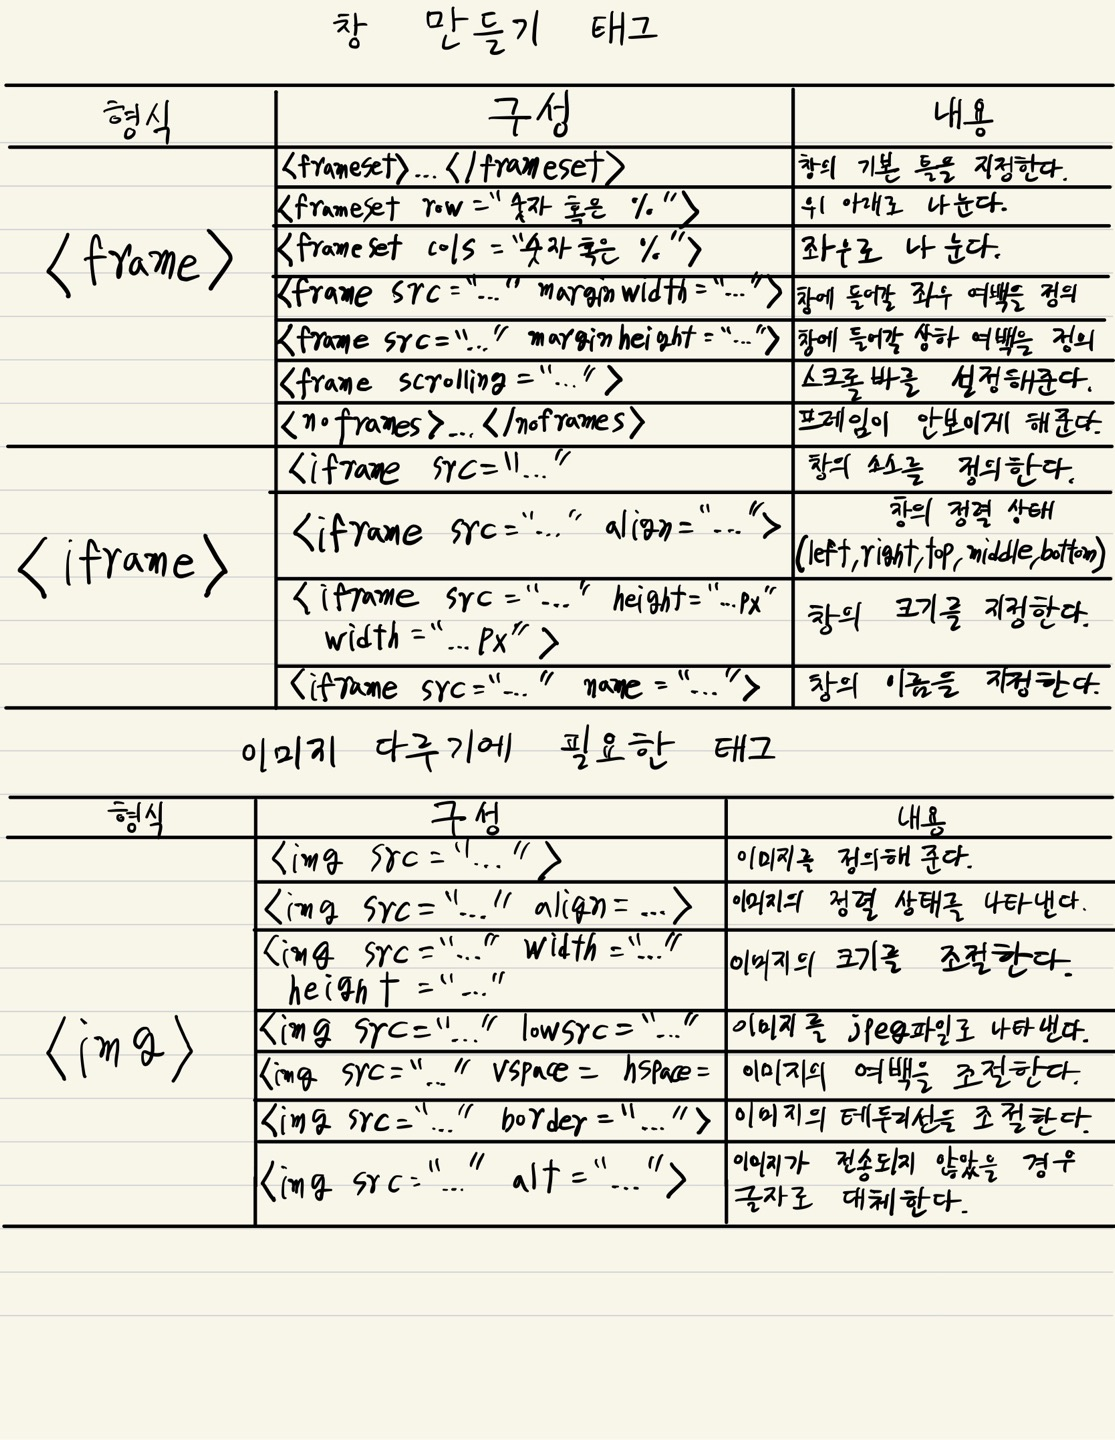 창 만들기 태그
형식 구성 내용
<frame>
<frameset>...</frameset> 창의 기본 틀을 지정한다.
<frameset row="숫자 혹은 %"> 위 아래로 나눈다.
<frameset cols="숫자 혹은 %"> 좌우로 나눈다.
<frame src="..." marginwidth="..."> 창에 들어갈 좌우 여백을 정의
<frame src="..." marginheight="..."> 창에 들어갈 상하 여백을 정의
<frame scrolling="..."> 스크롤바를 설정해준다.
<noframes>...</noframes> 프레임이 안보이게 해준다.
<iframe>
<iframe src="..." 창의 소스를 정의한다.
<iframe src="..." align="..."> 창의 정렬 상태
(left,right,top,middle,bottom)
<iframe src="..." height="...px" 창의 크기를 지정한다.
width="...px">
<iframe src="..." name="..."> 창의 이름을 지정한다.
이미지 다루기에 필요한 태그
형식 구성 내용
<img>
<img src="..."> 이미지를 정의해 준다.
<img src="..." align=...> 이미지의 정렬 상태를 나타낸다.
<img src="..." width="..." 이미지의 크기를 조절한다.
height="..."
<img src="..." lowsrc="..." 이미지를 jpeg파일로 나타낸다.
<img src="..." vspace= hspace= 이미지의 여백을 조절한다.
<img src="..." border="..."> 이미지의 테두리선을 조절한다.
<img src="..." alt="..."> 이미지가 전송되지 않았을 경우
글자로 대체한다.